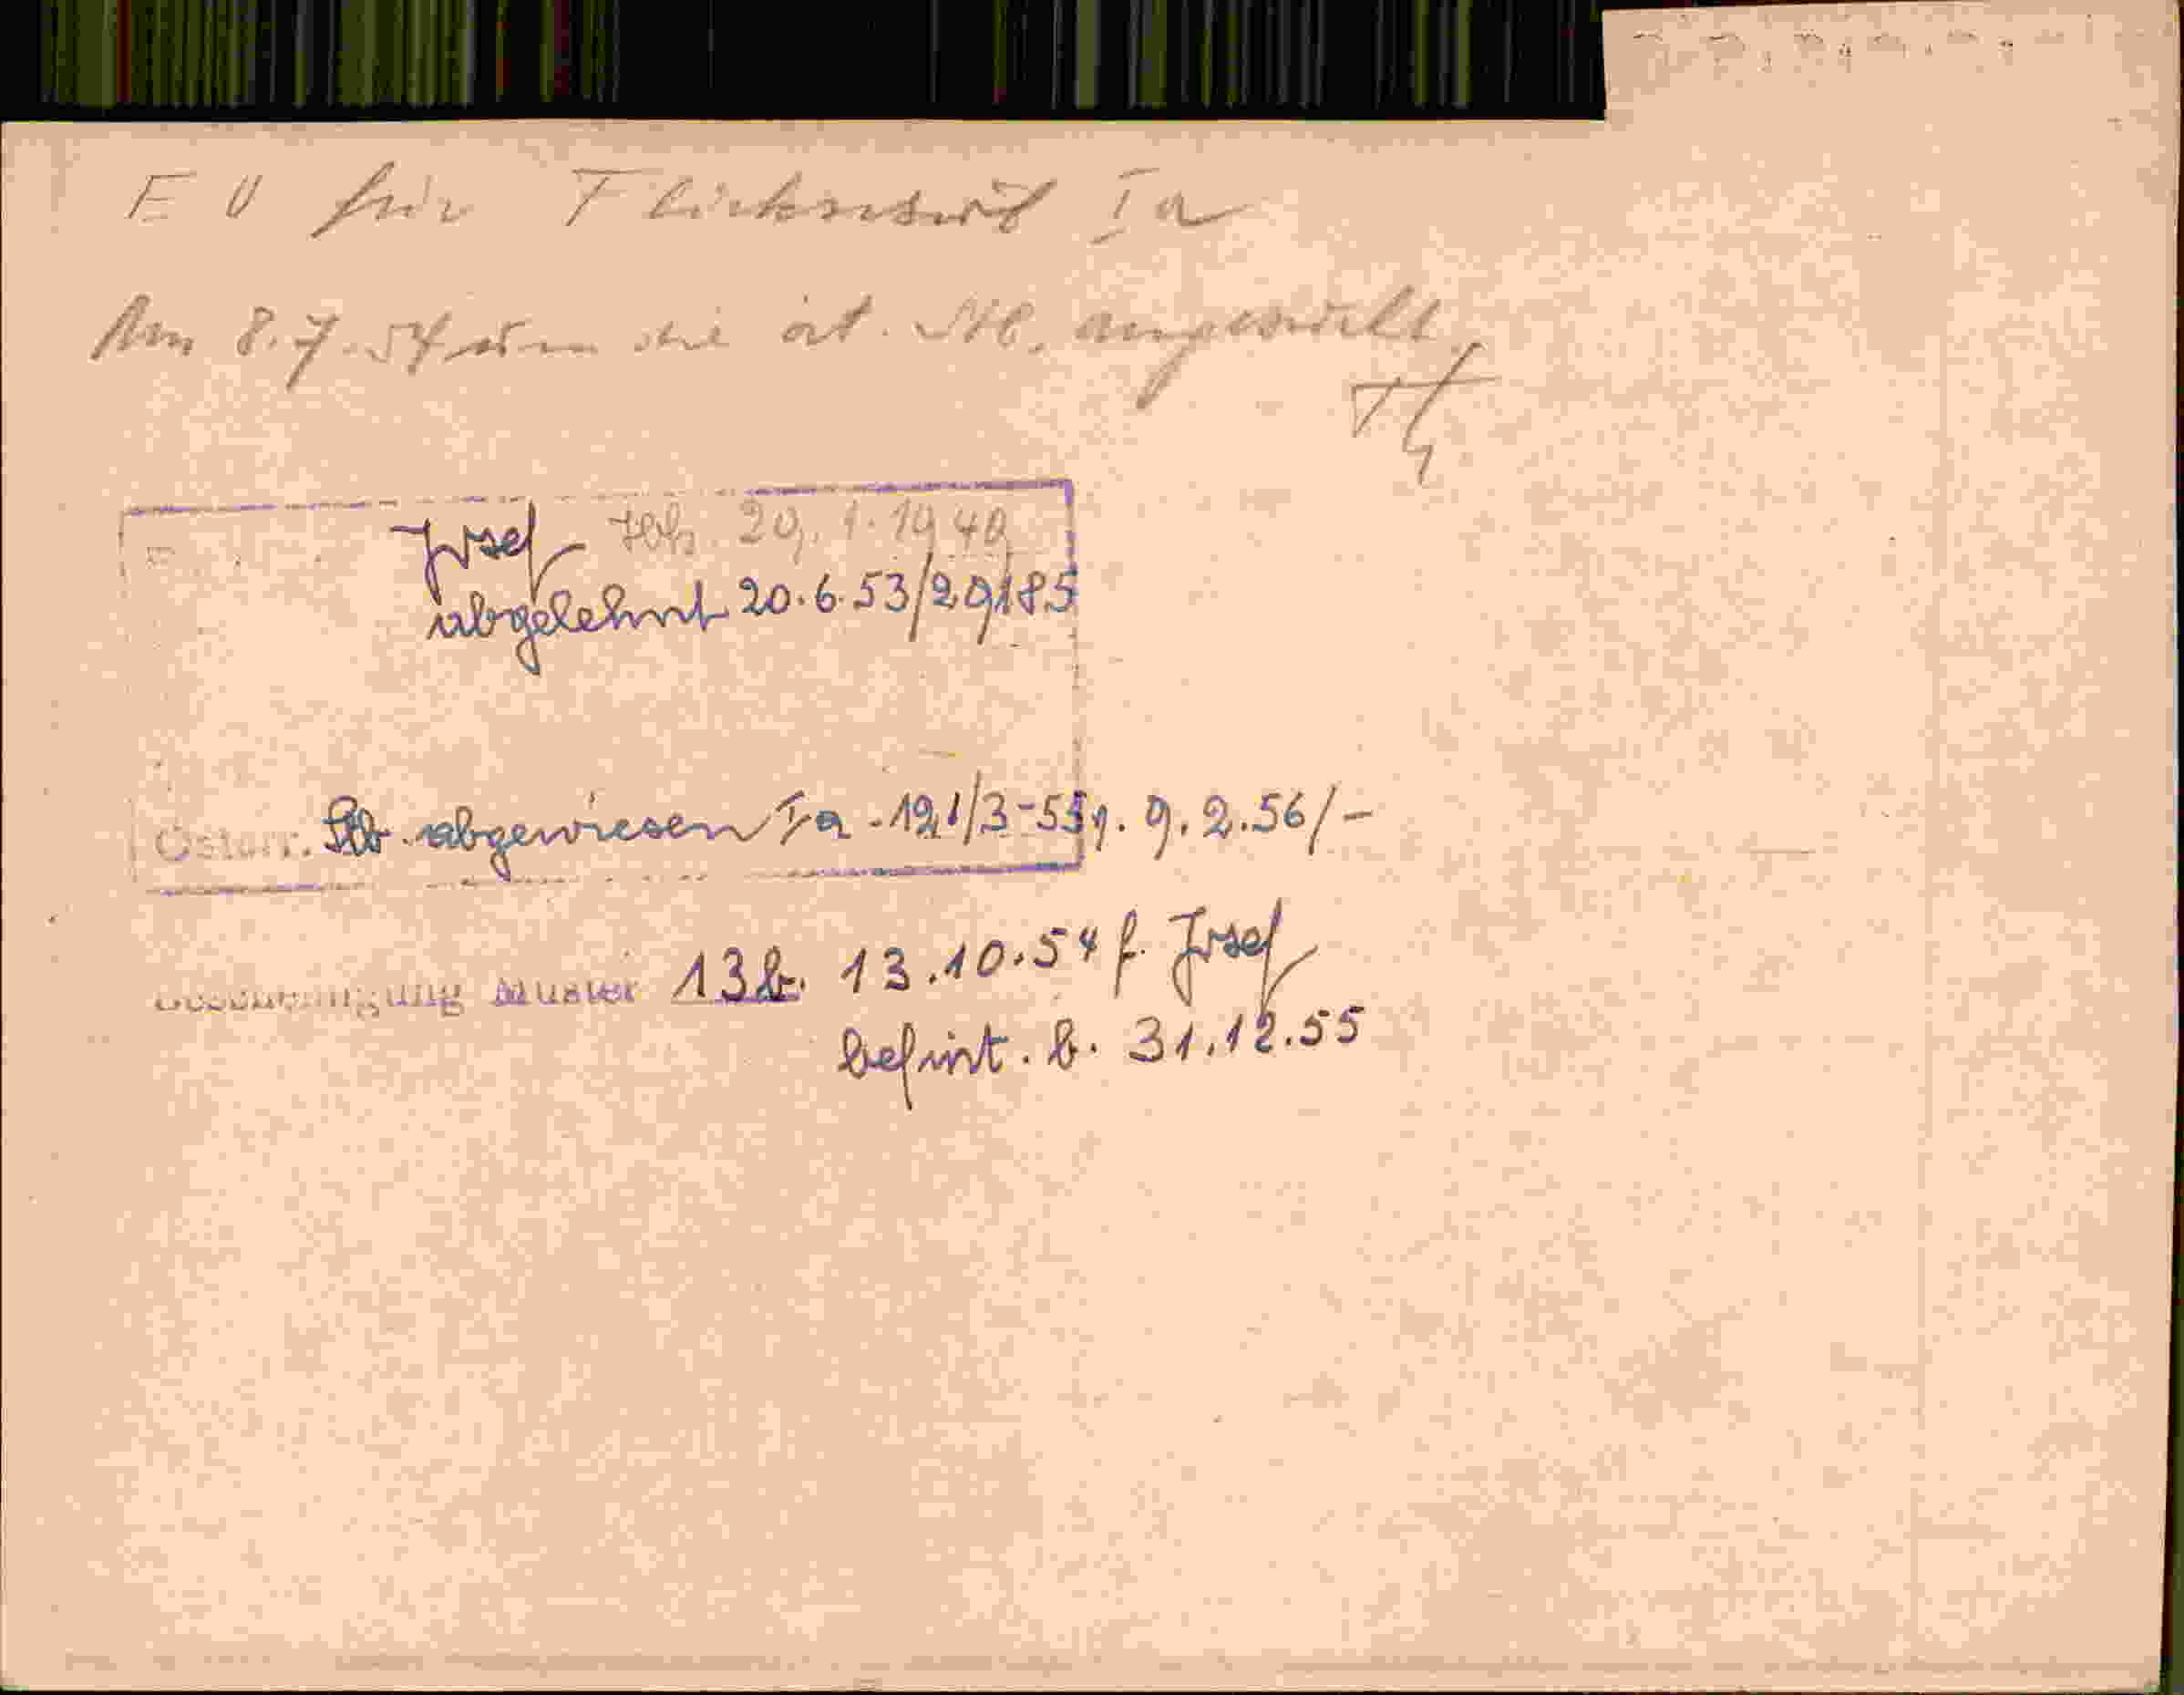 E V für Ia
Am 8.7.54 um die öst. Stb. angesucht
Josef 20.1.1940
abgelehnt 20.6.53/29185
Österr. Stb. abgewiesen Ia - 121/3-551. 9.2.56/-
Bescheinigung Muster 13b. 13.10.54 f. Josef
befrist. b. 31.12.55